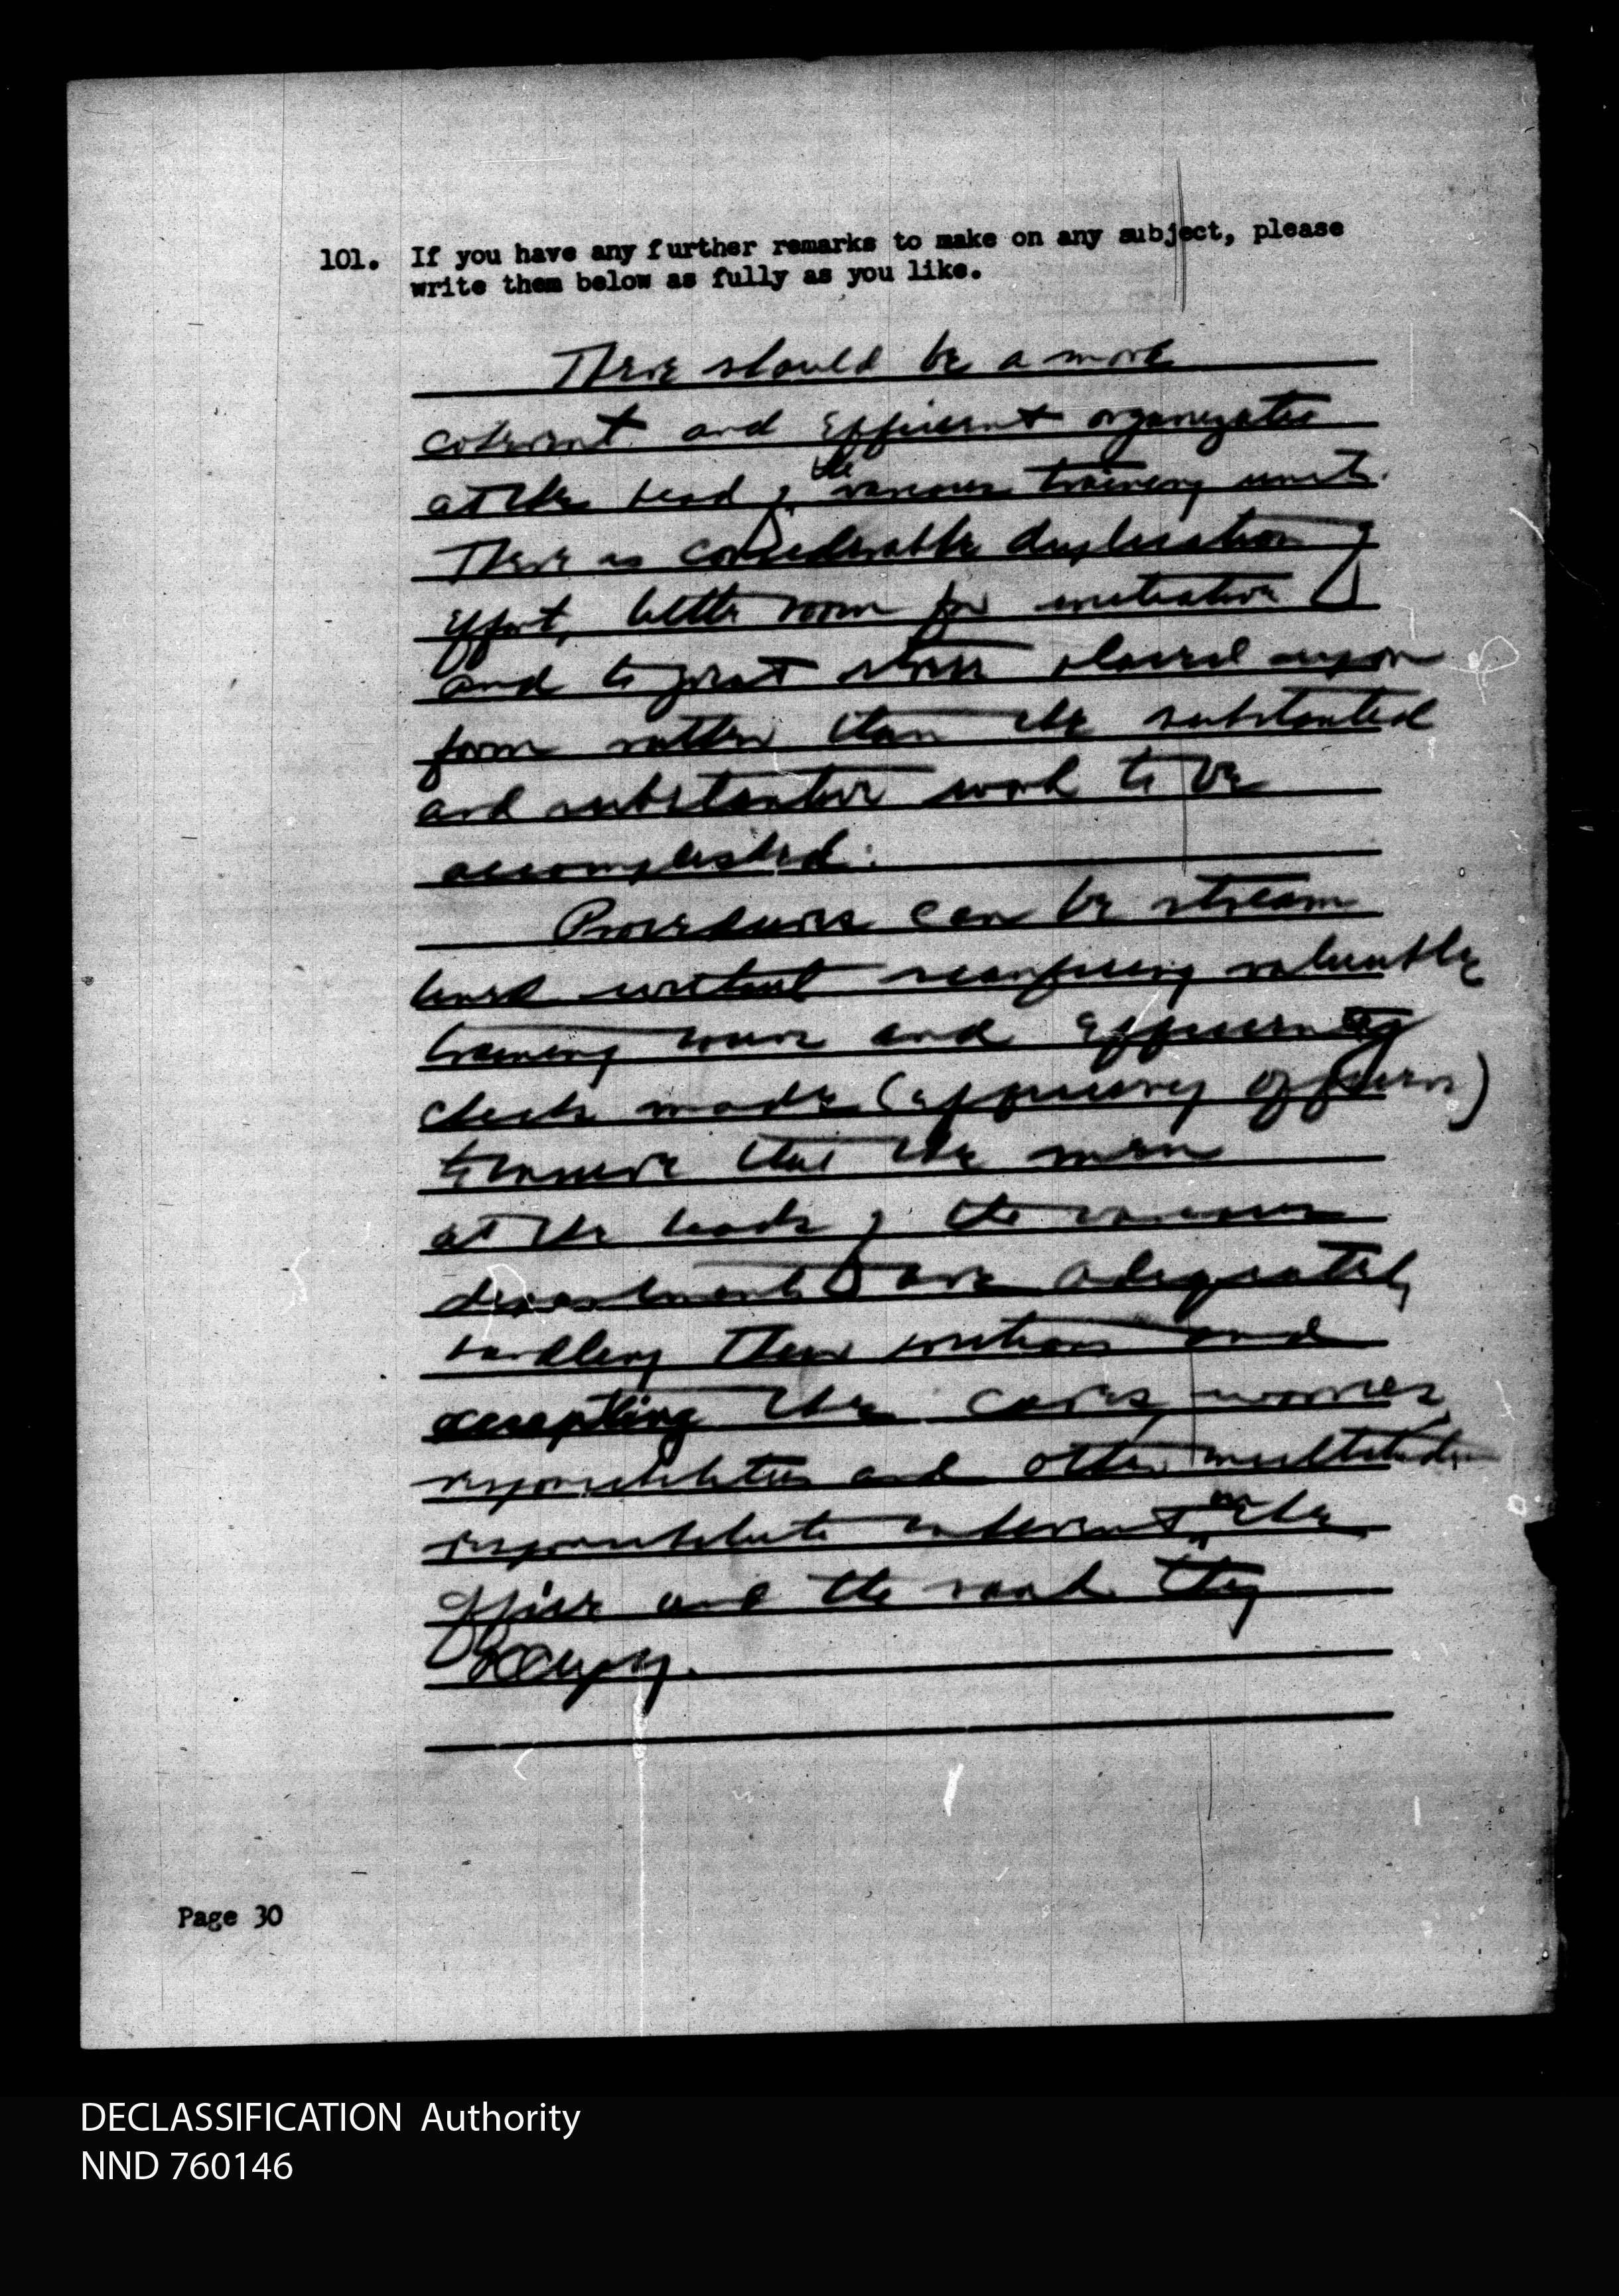 101. If you have any further remarks to make on any subject, please
write them below as fully as you like.
There should be a more
coherent and efficient organization
at the head of the various training units.
There is considerable duplication of
effort, little room for initiative
and to great stress placed upon
form rather than the substantial
and substantive work to be
accomplished.
Procedures can be stream
lined without sacrificing valuable
training hours and efficiency
checks made (efficiency officers)
to insure that the men
at the heads of the various
departments are adequately
handling their positions and
accepting the cares, worries,
responsibilities and other
responsibilities inherent in the
office and the rank they
occupy.
Page 30
DECLASSIFICATION Authority
NND 760146